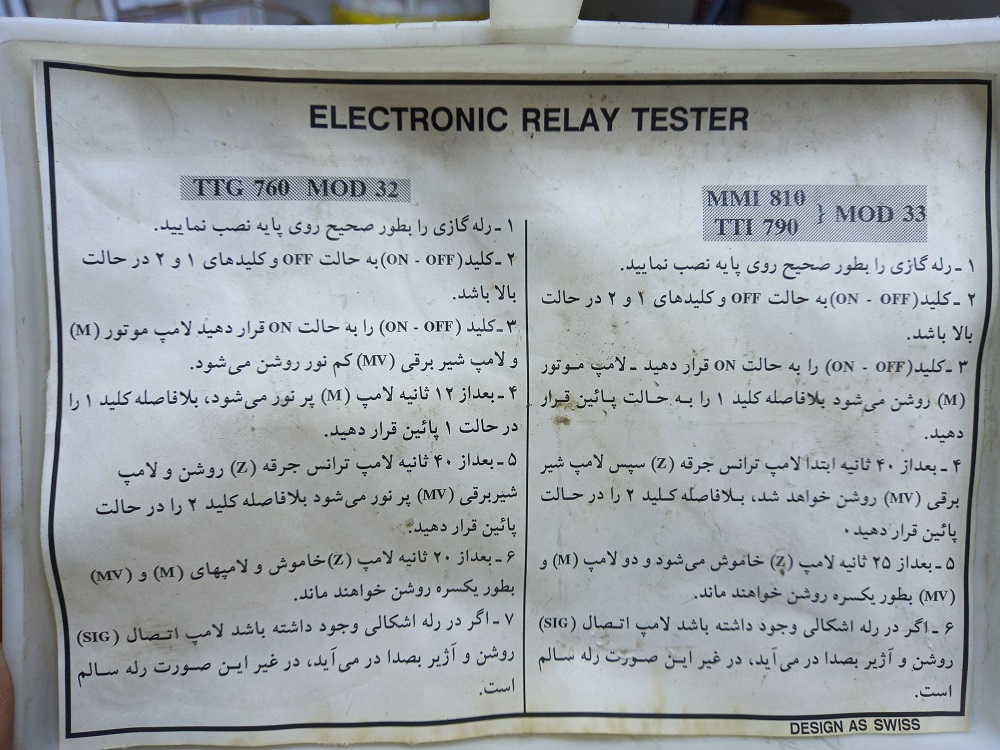 ELECTRONIC RELAY TESTER
MMI 810
TTI 790 } MOD 33
۱ ـ رله گازی را بطور صحیح روی پایه نصب نمایید.
۲ ـ کلید (ON - OFF) به حالت OFF و کلیدهای ۱ و ۲ در حالت
بالا باشد.
۳ ـ کلید (ON - OFF) را به حالت ON قرار دهید ـ لامپ موتور
(M) روشن می‌شود بلافاصله کلید ۱ را به حالت پائین قرار
دهید.
۴ ـ بعداز ۴۰ ثانیه ابتدا لامپ ترانس جرقه (Z) سپس لامپ شیر
برقی (MV) روشن خواهد شد، بلافاصله کلید ۲ را در حالت
پائین قرار دهید.
۵ ـ بعداز ۲۵ ثانیه لامپ (Z) خاموش می‌شود و دو لامپ (M) و
(MV) بطور یکسره روشن خواهند ماند.
۶ ـ اگر در رله اشکالی وجود داشته باشد لامپ اتصال (SIG)
روشن و آژیر بصدا در می‌آید، در غیر این صورت رله سالم
است.
TTG 760 MOD 32
۱ ـ رله گازی را بطور صحیح روی پایه نصب نمایید.
۲ ـ کلید (ON - OFF) به حالت OFF و کلیدهای ۱ و ۲ در حالت
بالا باشد.
۳ ـ کلید (ON - OFF) را به حالت ON قرار دهید لامپ موتور (M)
و لامپ شیر برقی (MV) کم نور روشن می‌شود.
۴ ـ بعداز ۱۲ ثانیه لامپ (M) پر نور می‌شود، بلافاصله کلید ۱ را
در حالت ۱ پائین قرار دهید.
۵ ـ بعداز ۴۰ ثانیه لامپ ترانس جرقه (Z) روشن و لامپ
شیربرقی (MV) پر نور می‌شود بلافاصله کلید ۲ را در حالت
پائین قرار دهید.
۶ ـ بعداز ۲۰ ثانیه لامپ (Z) خاموش و لامپهای (M) و (MV)
بطور یکسره روشن خواهند ماند.
۷ ـ اگر در رله اشکالی وجود داشته باشد لامپ اتصال (SIG)
روشن و آژیر بصدا در می‌آید، در غیر این صورت رله سالم
است.
DESIGN AS SWISS